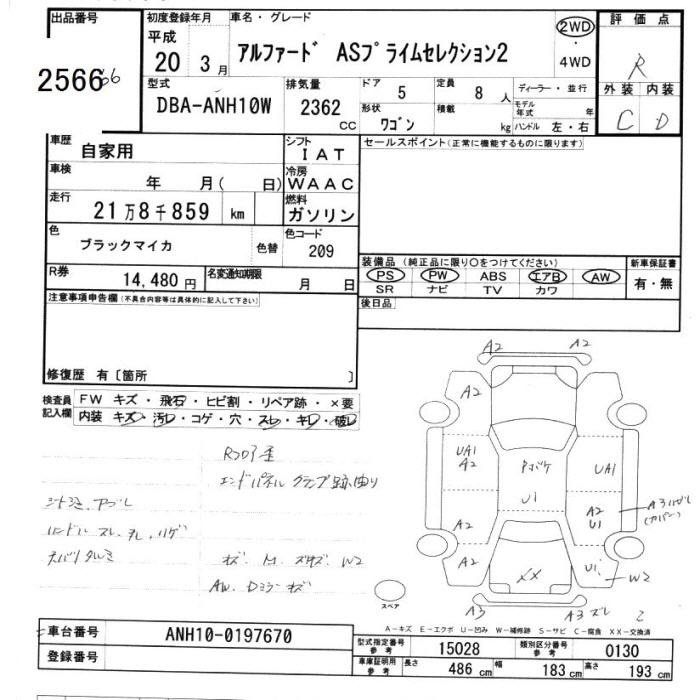 出品番号
2566
66
初度登録年月
平成
20 3月
車名・グレード
アルファード ASプライムセレクション2
2WD
・
4WD
評価点
R
外装 内装
C D
型式
DBA-ANH10W
排気量
2362
CC
ドア
5
形状
ワゴン
定員
8 人
積載
kg
ディーラー・並行
モデル年式 年
ハンドル 左・右
車歴
自家用
シフト
IAT
車検
年 月( 日)
冷房
WAAC
走行
21万8千859 km
燃料
ガソリン
色
ブラックマイカ
色替
色コード
209
R券
14,480円
名変通知期限
月 日
セールスポイント(正常に機能するものに限ります)
装備品 (純正品に限り○をつけてください)
PS PW ABS エアB AW
SR ナビ TV カワ
新車保証書
有・無
後日品
注意事項申告欄(不具合内容等は具体的に記入して下さい)
修復歴 有〔箇所 〕
検査員記入欄
FW キズ・飛石・ヒビ割・リペア跡・×要
内装 キズ・汚レ・コゲ・穴・スレ・キレ・破レ
エンドパネル クランプ跡曲り
ハンドル スレ
W2
AW
A2 A2
A2
UA1
A2
UA1
U1
A2
U1
A2
A2
U1
W2
XX
A3
A3 スレ
スペア
A-キズ E-エクボ U-凹み W-補修跡 S-サビ C-腐食 XX-交換済
車台番号
ANH10-0197670
登録番号
型式指定番号
参考
15028
類別区分番号
参考
0130
車庫証明用
参考
長さ 486 cm
幅 183 cm
高さ 193 cm